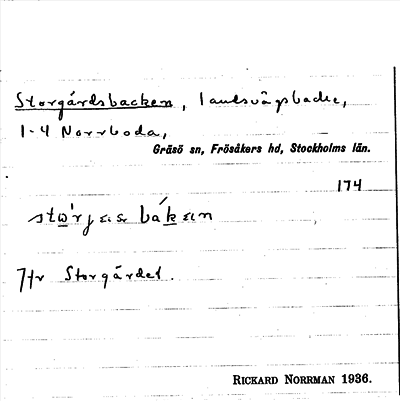 Storgårdsbacken, landsvägsbacke,
1-4 Norrboda,
Gräsö sn, Frösåkers hd, Stockholms län.
174
Jfr Storgårdet.
RICKARD NORRMAN 1936.